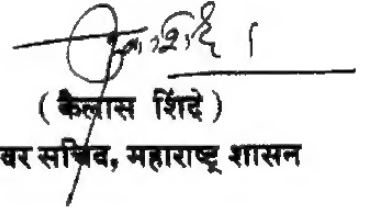 ( कैलास शिंदे )
वर सचिव, महाराष्ट्र शासन